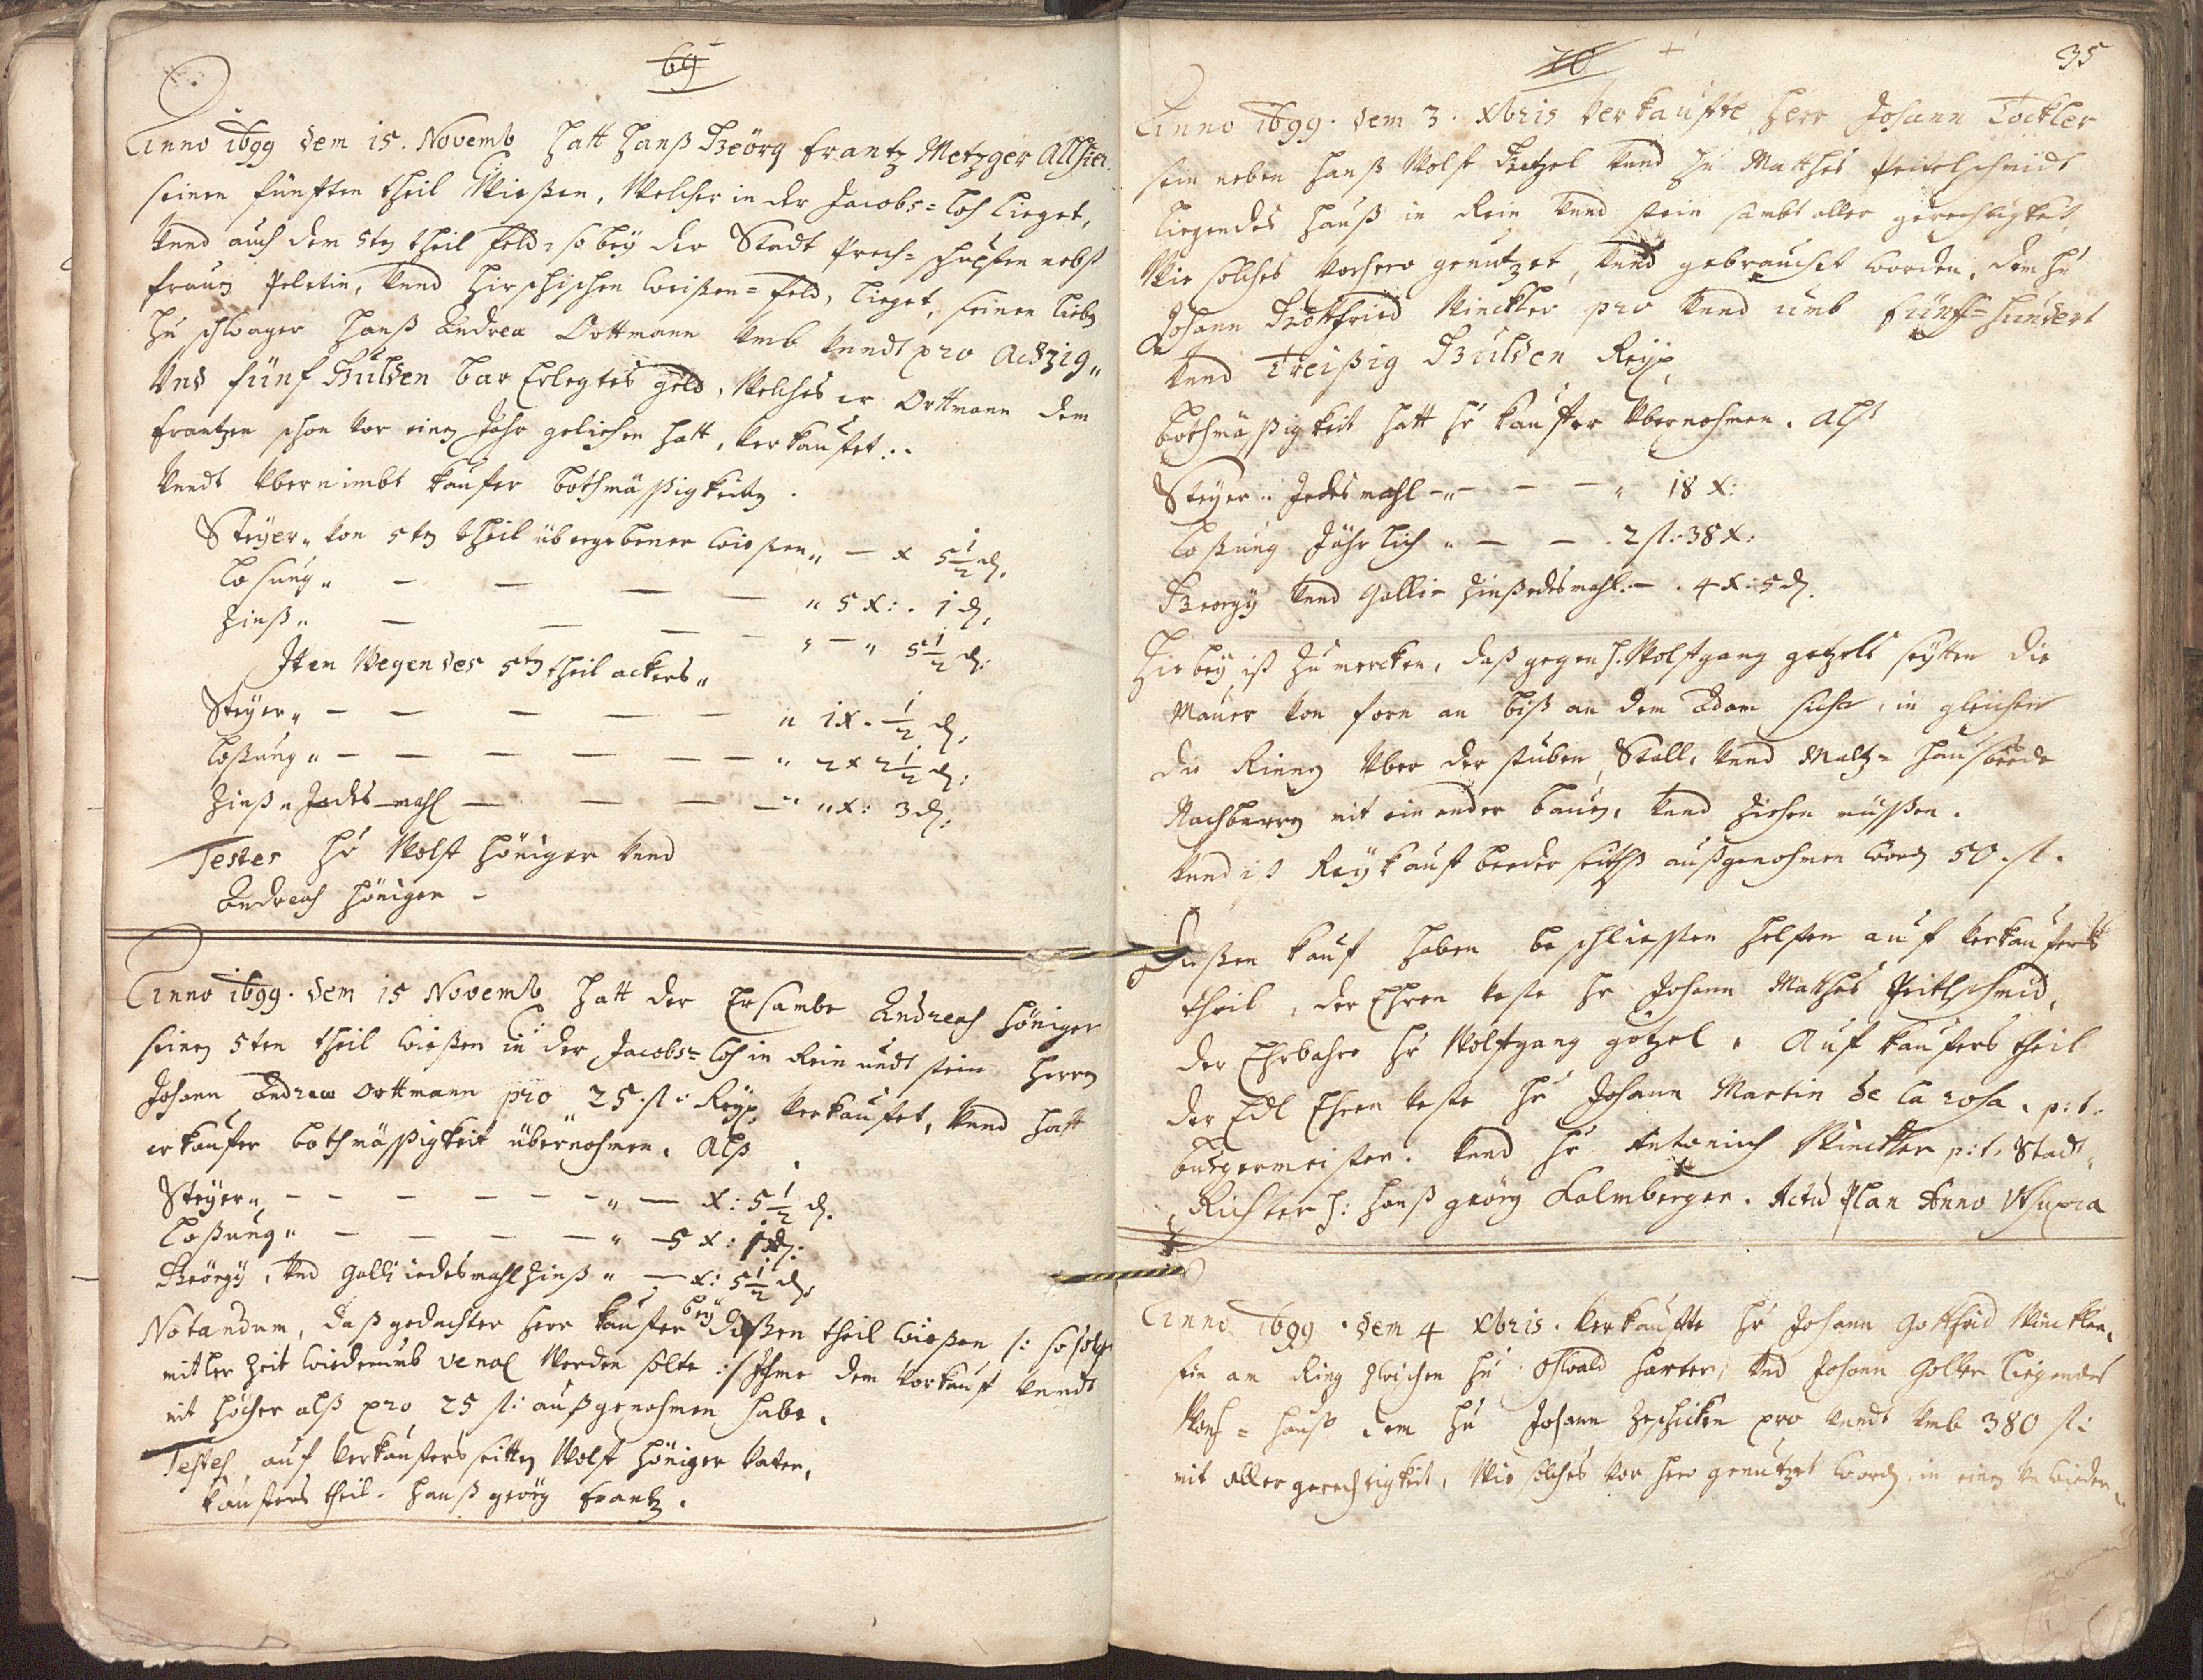 69
Anno 1699 dem 15. Novemb hatt Hanß Geörg Frantz Metzger Allhier
seinen fünfften theil Wießen, Welcher in der Jacobs= Loh Lieget,
Vnnd auch den 5ten theil feld, so bey der Stadt Prech= schupfen nebst
frauen Peletin, Vnnd Hirschischen Weißen= feld, Lieget, seinen Lieben
H: schwager Hanß Andrea Orttmann Vmb Vnndt pro Achzig„
Vnd fünf Gulden bar Erlegtes geld, Welches er Orttmann dem
Frantzen schon vor einen Jahr geliehen hatt, Verkaufet..
Vnndt Vbernimbt kaufer bothmäßigkeiten.
Steyer„ von 5ten theil übergebener Wießen„ — x 5 1/2 d.
Losung„ — — — — „ 5 x: 1 d,
Zinß„ — — — — „ — „ 5 1/2 d:
Item Wegen des 5ten theil ackers„
Steyer„ — — — — — „ 1x. 1/2 d,
Loßung„ — — — — — — „ 2 x 2 1/2 d:
Zinß„ Jedes mahl — — — — „ „x: 3 d:
Testes Hr Wolf Höniger Vnnd
Andreas Höniger
Anno 1699. dem 15 Novemb hatt der Ersambe Andreas Höniger
seinen 5ten theil Wießen in der Jacobs= Loh in Rein undt stein Herrn
Johann Andrea Orttmann pro 25 fl: Reyn. Verkaufet, Vnnd hatt
er kaufer bothmäßigkeit übernohmen. Alß
Steyer„ — — — — — — „ — x: 5 1/2 d.
Loßung„ — — — — — „ — 5 x: 1 d:
Geörgy, Vnd Galli iedesmahl Zinß„ — x: 5 1/2 d:
Notandum, daß gedachter Herr kaufer bey dießen theil Wießen /: so solche
mitler Zeit Wiederumb venal Werden solte :/ Ihme den Vorkauf Vnndt
nit höcher alß pro 25 fl: außgenohmen habe.
Testes auf Verkaufers seitten Wolf Höniger Vater,
kaufers theil. Hanß geörg Frantz.
70
35
Anno 1699. dem 3. Xbris Verkaufte Herr Johann Tockler
sein neben Hanß Wolf Getzel Vnnd H: Matthes Peitelschmidt
Liegendes Hauß in Rein Vnnd stein sambt aller gerechtigkeit,
Wie solches Vorhero genutzet, Vnnd gebraucht worden, dem H:
Johann Gottfried Winckler pro Vnnd umb fünff= hundert
Vnnd Treißig Gulden Reyn.
bothmäßigkeit hatt Hr kaufer Vbernohmen. Alß
Steyer„ Jedes mahl — — — „ 18 x:
Loßung Jährlich „ — — 2 fl. 38 x.
Georgy Vnnd Galli= Zinß edesmahl. — . 4 x: 5 d.
Hiebey ist Zu mercken, daß gegen H. Wolfgang getzels seytten die
Mauer von forn an biß an dem Adam sicher, in gleichen
die Rinnen Vber der stuben, Stall, Vnnd Maltz= Hauß beede
Nachbarn mit ein ander bauen, Vnnd Ziehen müßen.
Vnnd ist Reykauf beeder seiths außgenohmen worden 50 fl.
Dießen kauf haben beschliessen helffen auf Verkaufers
theil, der Ehren veste Hr Johann Matthes Peitlschmid,
der Ehrbahre Hr Wolfgang götzel. Auf kaufers theil
der Edl Ehren veste Hr Johann Martin de la rosa. p:t.
burgermeister. Vnnd Hr Antonius Winckler p:t. Stadt
Richter H: Hanß geörg Salmberger. Actum Plan Anno Vt supra
Anno 1699. dem 4 Xbris. Verkaufte Hr Johann Gottfrid Winckler,
sein am Ring Zwischen Hr Oswald Harter, Vnd Johann Goller Liegendes
Wohn= Hauß dem Hr Johann Zeschicken pro Vnndt Vmb 380 fl:
mit aller gerechtigkeit, Wie solches Vor hero genutzet worden, in einen Vnwieder„